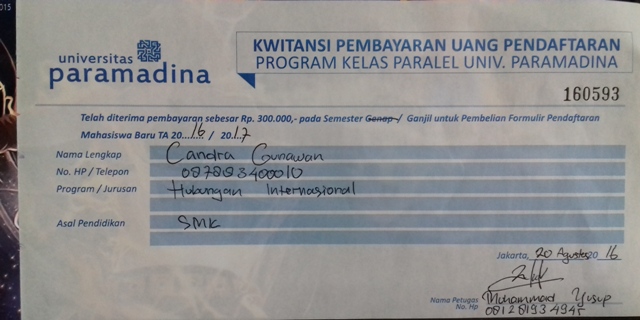 2015
universitas
paramadina
KWITANSI PEMBAYARAN UANG PENDAFTARAN
PROGRAM KELAS PARALEL UNIV. PARAMADINA
160593
Telah diterima pembayaran sebesar Rp. 300.000,- pada Semester Genap / Ganjil untuk Pembelian Formulir Pendaftaran
Mahasiswa Baru TA 20...16 / 20.17
Nama Lengkap Candra Gunawan
No. HP / Telepon 087893400010
Program / Jurusan Hubungan Internasional
Asal Pendidikan SMK
Jakarta, 20 Agustus 20 16
Nama Petugas Muhammad Yusup
No. Hp 081281934945